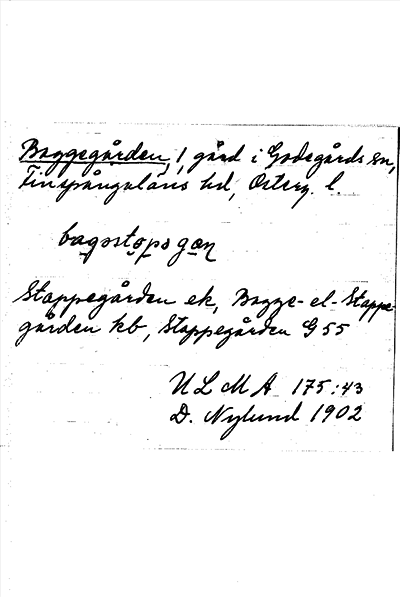 Baggegården, 1 gård i Godegårds sn,
Finspångaläns hd, Österg. l.
bagostopsgan
Stappegården ek, Bagge- el- Stappe-
gården kb, Stappegården G 55
U L M A 175:43
D. Nylund 1902